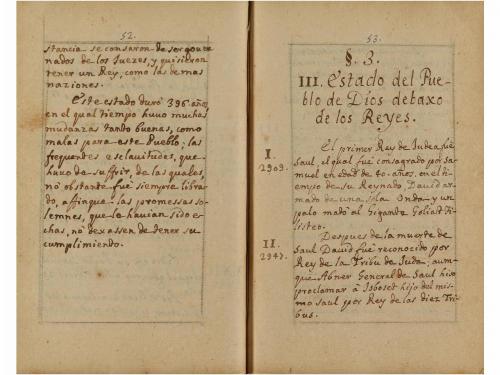 52.
stancia se cansaron de ser gover
nados de los Juezes, y quisieron
tener un Rey, como las demas
naziones.
Este estado durò 396 años,
en el qual tiempo huvo muchas
mudanzas tanto buenas, como
malas para este Pueblo; las
frequentes esclavitudes, que
huvo de suffrir, de las quales,
no obstante fue siempre libra
do, affinque las promessas so
lemnes, que le havian sido e
chas, no dexassen de tener su
cumplimiento.
53.
§. 3.
III. Estado del Pue-
blo de Dios debaxo
de los Reyes.
I.
2909.
El primer Rey de Judea fue
Saul, el qual fue consagrado por Sa
muel en edad de 40. años. en el ti
empo de su Reynado, David ar
mado de una sola Onda y un
palo matò al Gigante Goliat Fi
listeo.
II.
2947.
Despues de la muerte de
Saul David fue reconocido por
Rey de la Tribu de Juda, aun
que Abner General de Saul hizo
proclamar à Isboset hijo del mis
mo Saul por Rey de las diez Tri
bus.